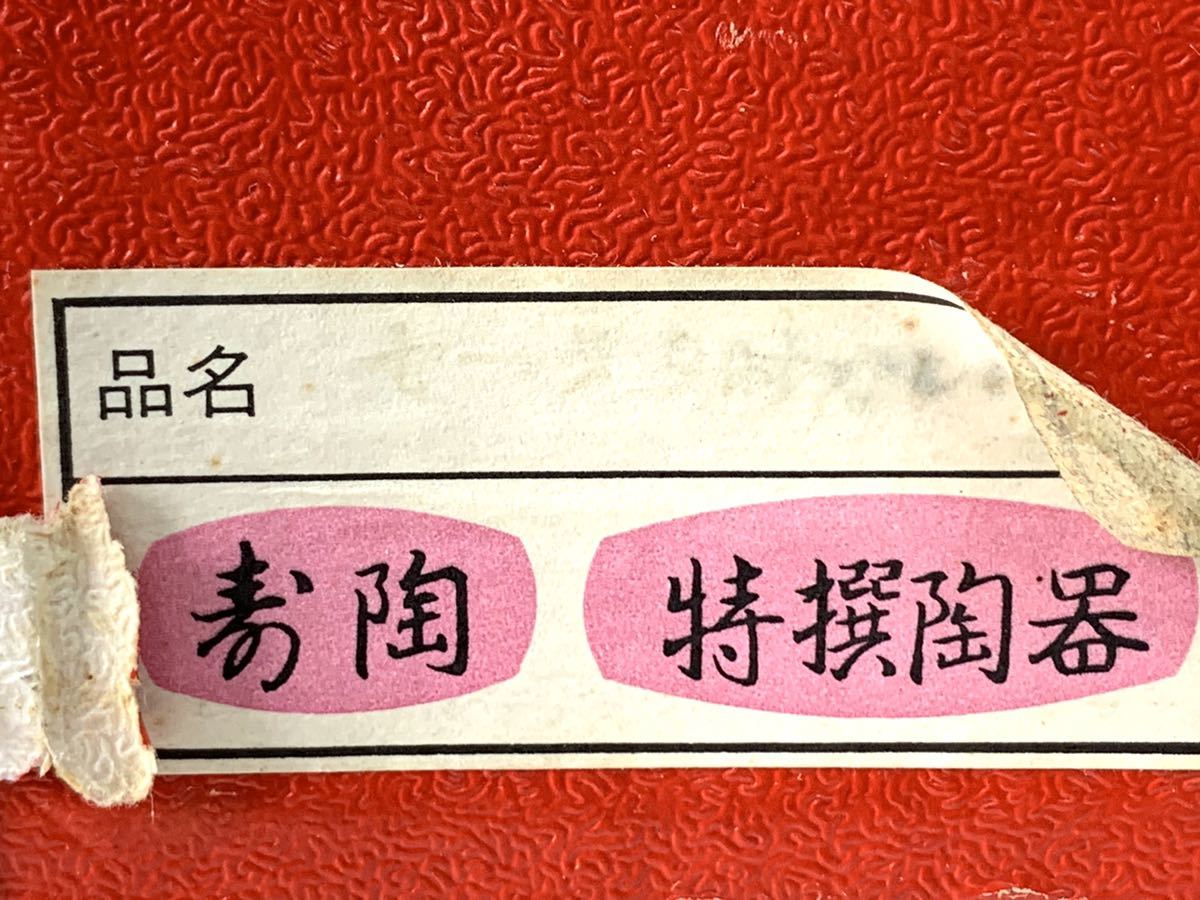 品名
寿陶 特撰陶器